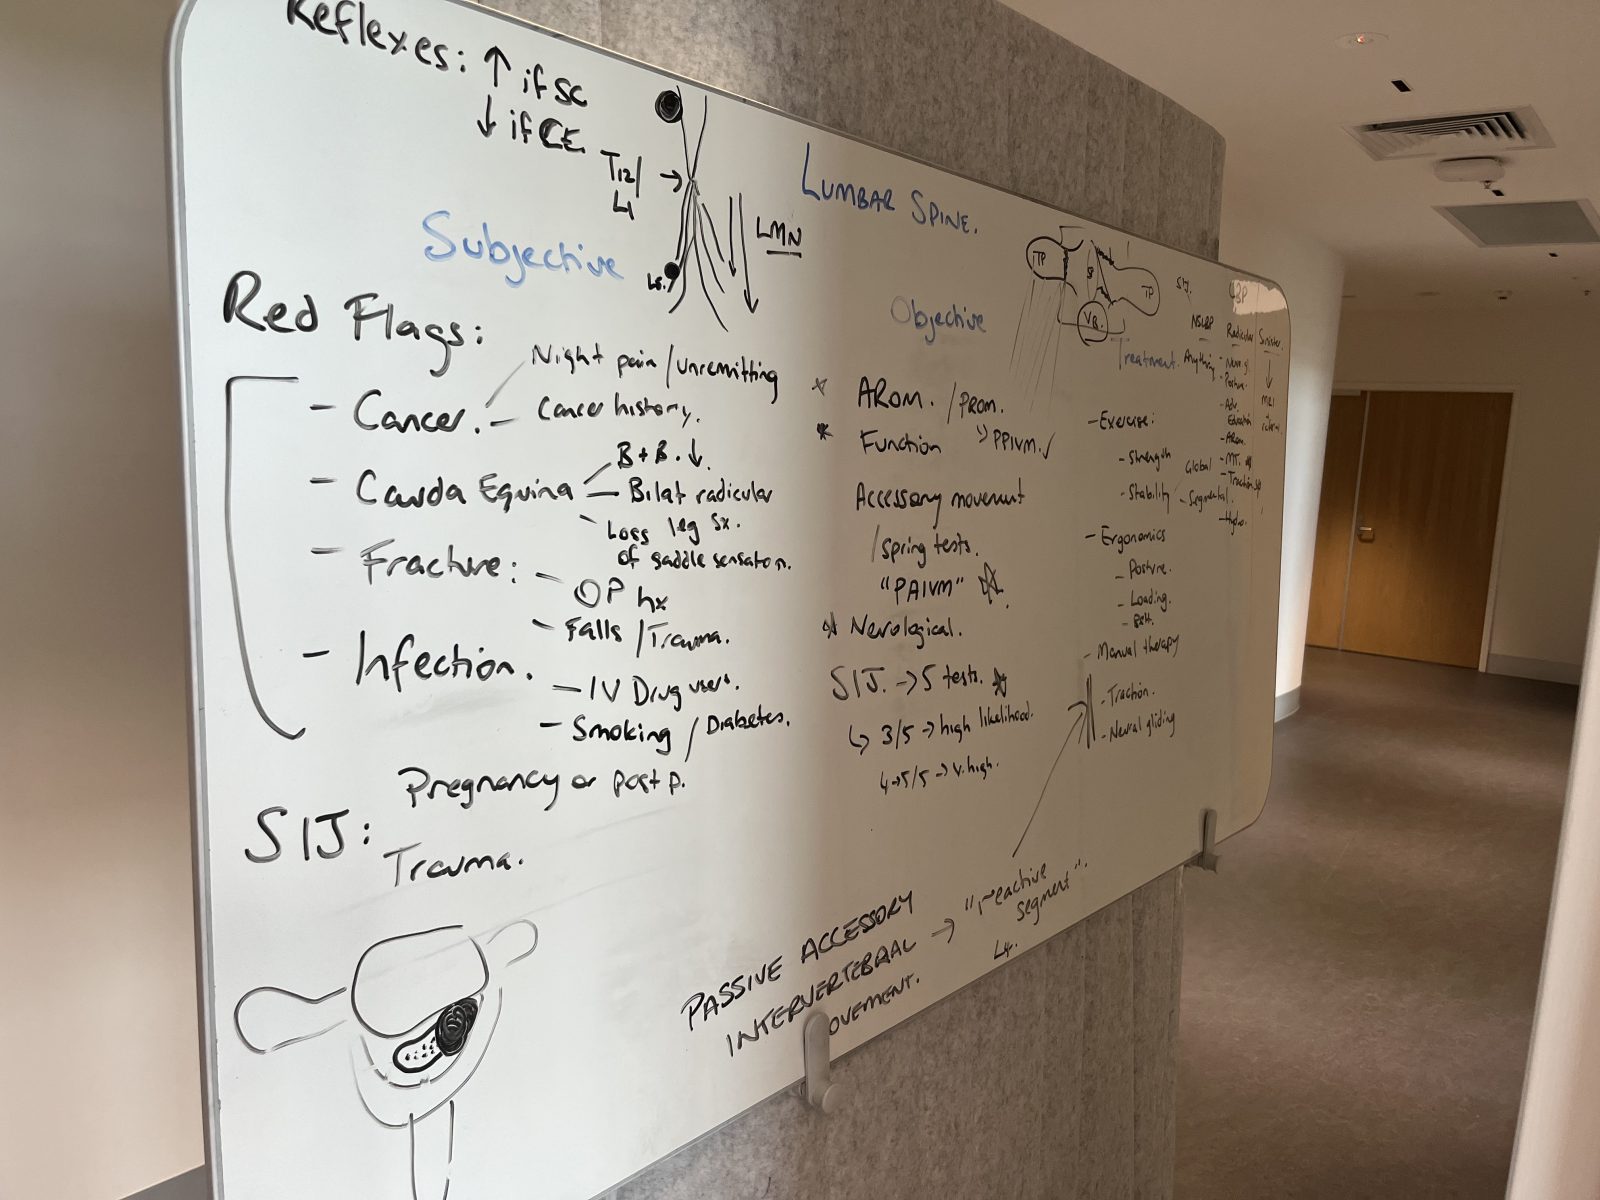 Reflexes: ↑ if SC
↓ if CE.
T12/
L1
→
LMN
Subjective
Red Flags:
- Cancer.
Night pain / unremitting
- Cancer history.
- Cauda Equina
B + B. ↓.
- Bilat radicular
leg sx.
- Loss
of saddle sensation.
- Fracture:
- OP hx
- Falls / Trauma.
- Infection.
- IV Drug users.
- Smoking / Diabetes.
SIJ:
Pregnancy or post p.
Trauma.
LUMBAR SPINE.
Objective
AROM. / PROM.
Function
↳ PPIVM. ✓
Accessory movement
/ Spring tests.
"PAIVM"
Neurological.
SIJ. → 5 tests.
↳ 3/5 → high likelihood.
4→5/5 → v. high.
PASSIVE ACCESSORY
INTERVERTEBRAL
OVEMENT.
→ "reactive
segment".
L4.
TP
TP
VB.
SIJ.
LBP
NSLBP
Radicular
Sinister.
↓
MRI
Treatment.
Anything
- Posture.
- Adv.
Education
- AROM.
- MT.
- Traction
- Hydro.
- Exercise:
- Strength
- Stability
Global
- Segmental.
- Ergonomics
- Posture.
- Loading.
- Belt.
- Manual therapy
- Traction.
- Neural gliding